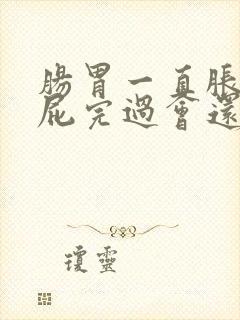 腸胃一直脹
屁完過會還
瓊靈